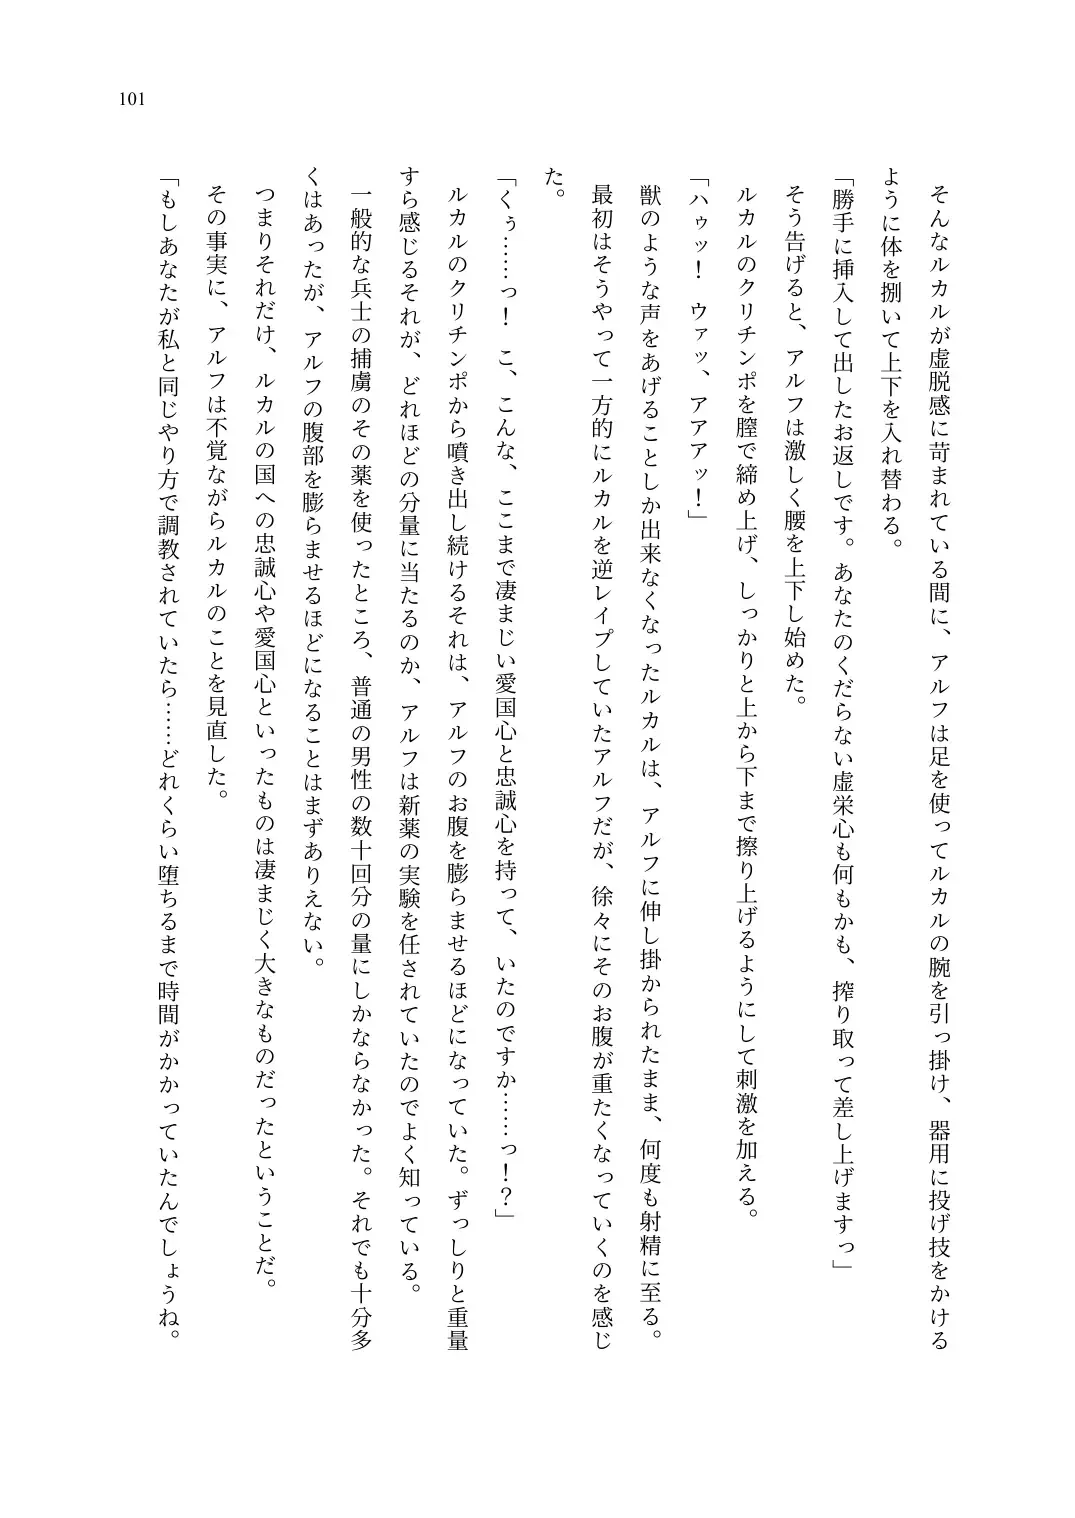 101
　そんなルカルが虚脱感に苛まれている間に、アルフは足を使ってルカルの腕を引っ掛け、器用に投げ技をかける
ように体を捌いて上下を入れ替わる。
「勝手に挿入して出したお返しです。あなたのくだらない虚栄心も何もかも、搾り取って差し上げますっ」
　そう告げると、アルフは激しく腰を上下し始めた。
　ルカルのクリチンポを膣で締め上げ、しっかりと上から下まで擦り上げるようにして刺激を加える。
「ハゥッ！　ウァッ、アアアッ！」
　獣のような声をあげることしか出来なくなったルカルは、アルフに伸し掛かられたまま、何度も射精に至る。
　最初はそうやって一方的にルカルを逆レイプしていたアルフだが、徐々にそのお腹が重たくなっていくのを感じ
た。
「くぅ……っ！　こ、こんな、ここまで凄まじい愛国心と忠誠心を持って、いたのですか……っ！？」
　ルカルのクリチンポから噴き出し続けるそれは、アルフのお腹を膨らませるほどになっていた。ずっしりと重量
すら感じるそれが、どれほどの分量に当たるのか、アルフは新薬の実験を任されていたのでよく知っている。
　一般的な兵士の捕虜のその薬を使ったところ、普通の男性の数十回分の量にしかならなかった。それでも十分多
くはあったが、アルフの腹部を膨らませるほどになることはまずありえない。
　つまりそれだけ、ルカルの国への忠誠心や愛国心といったものは凄まじく大きなものだったということだ。
　その事実に、アルフは不覚ながらルカルのことを見直した。
「もしあなたが私と同じやり方で調教されていたら……どれくらい堕ちるまで時間がかかっていたんでしょうね。